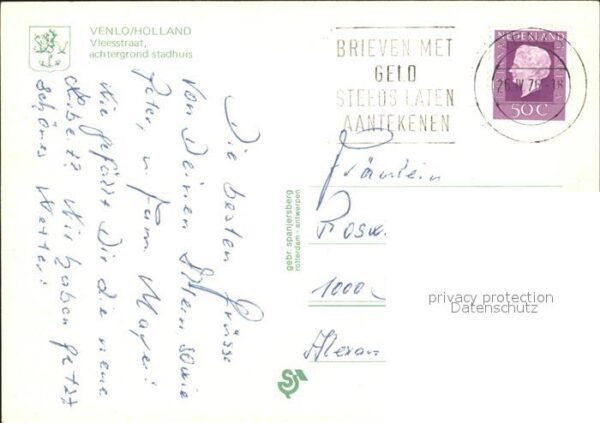 VENLO/HOLLAND
Vleesstraat,
achtergrond stadhuis
BRIEVEN MET
GELD
STEEDS LATEN
AANTEKENEN
NEDERLAND
50 C
Die besten Grüsse
von Deinen Eltern sowie
Peter, u. Fam. Mayer!
Wie gefällt Dir die neue
Arbeit? Wir haben jetzt
schönes Wetter!
gebr. spanjersberg
rotterdam - antwerpen
Fräulein
Rosw
1000
Alexan
privacy protection
Datenschutz